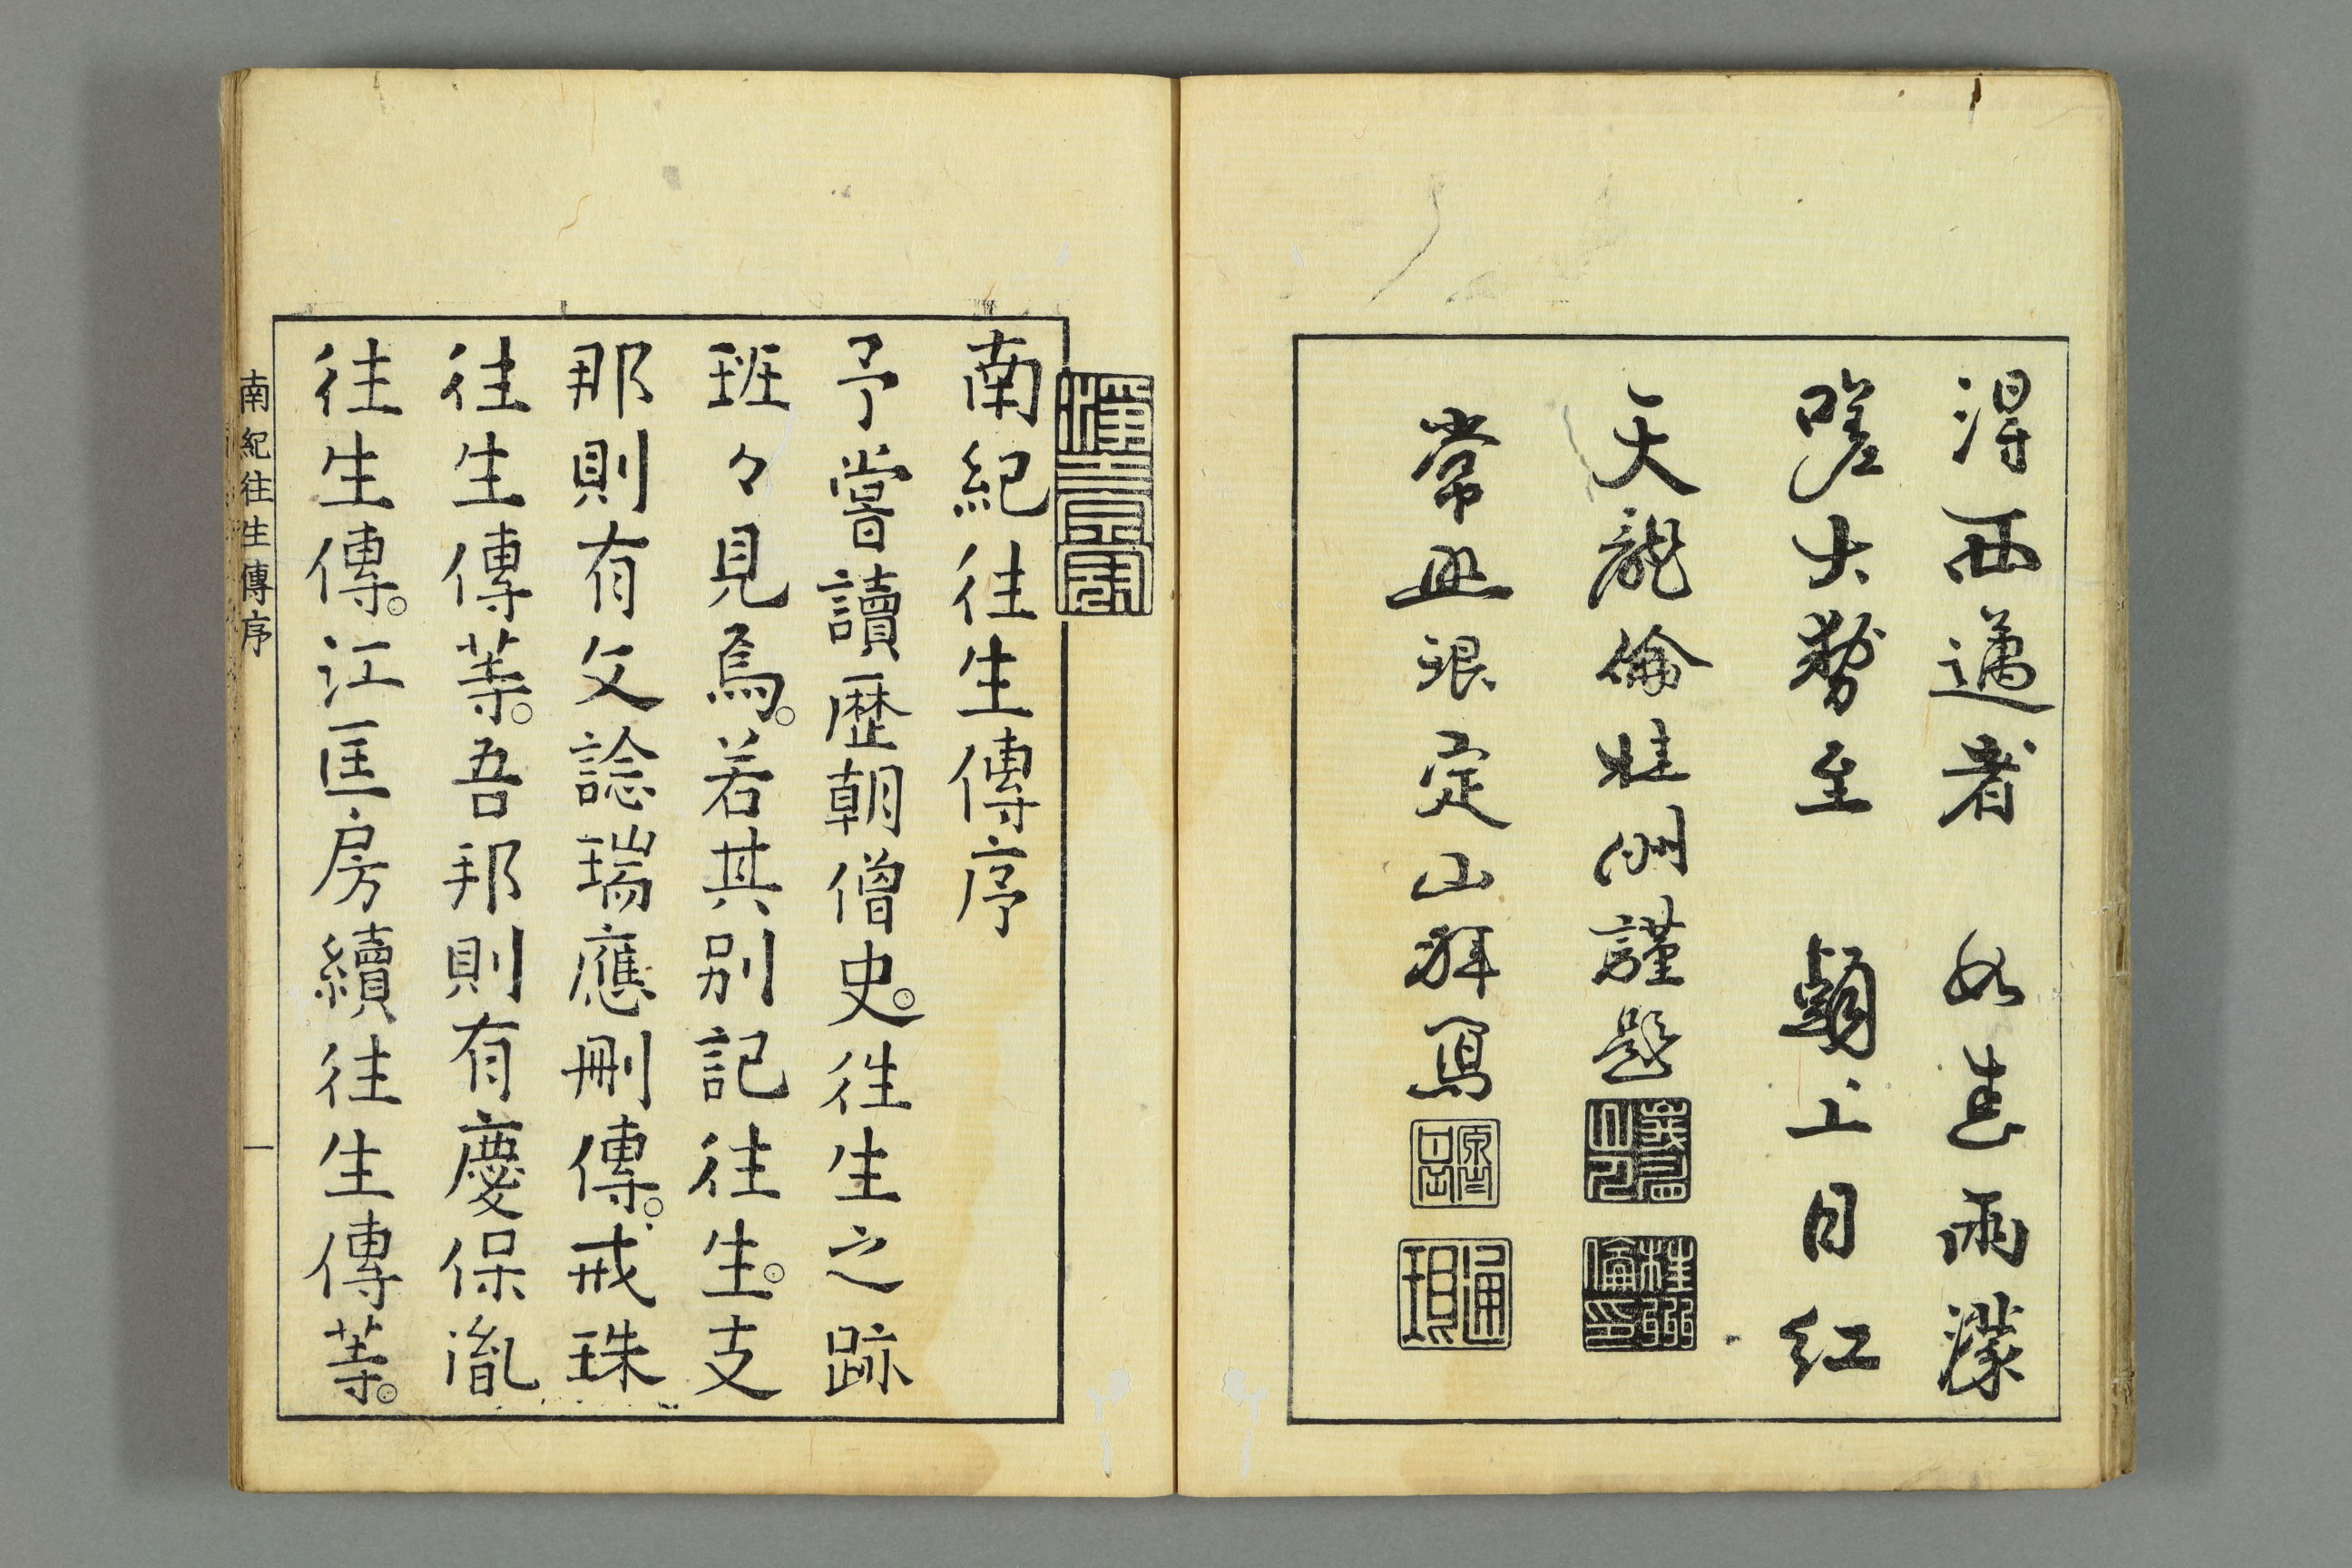 得西邁者 如春雨濛
嗟大勢至 頭上日紅
天龍倫桂洲謹題
常照 定山拜寫
南紀往生傳序
予嘗讀歷朝僧史往生之跡
班々見焉若其別記往生支
那則有文諗瑞應刪傳戒珠
往生傳等吾邦則有慶保胤
往生傳江匡房續往生傳等
南紀往生傳序
一